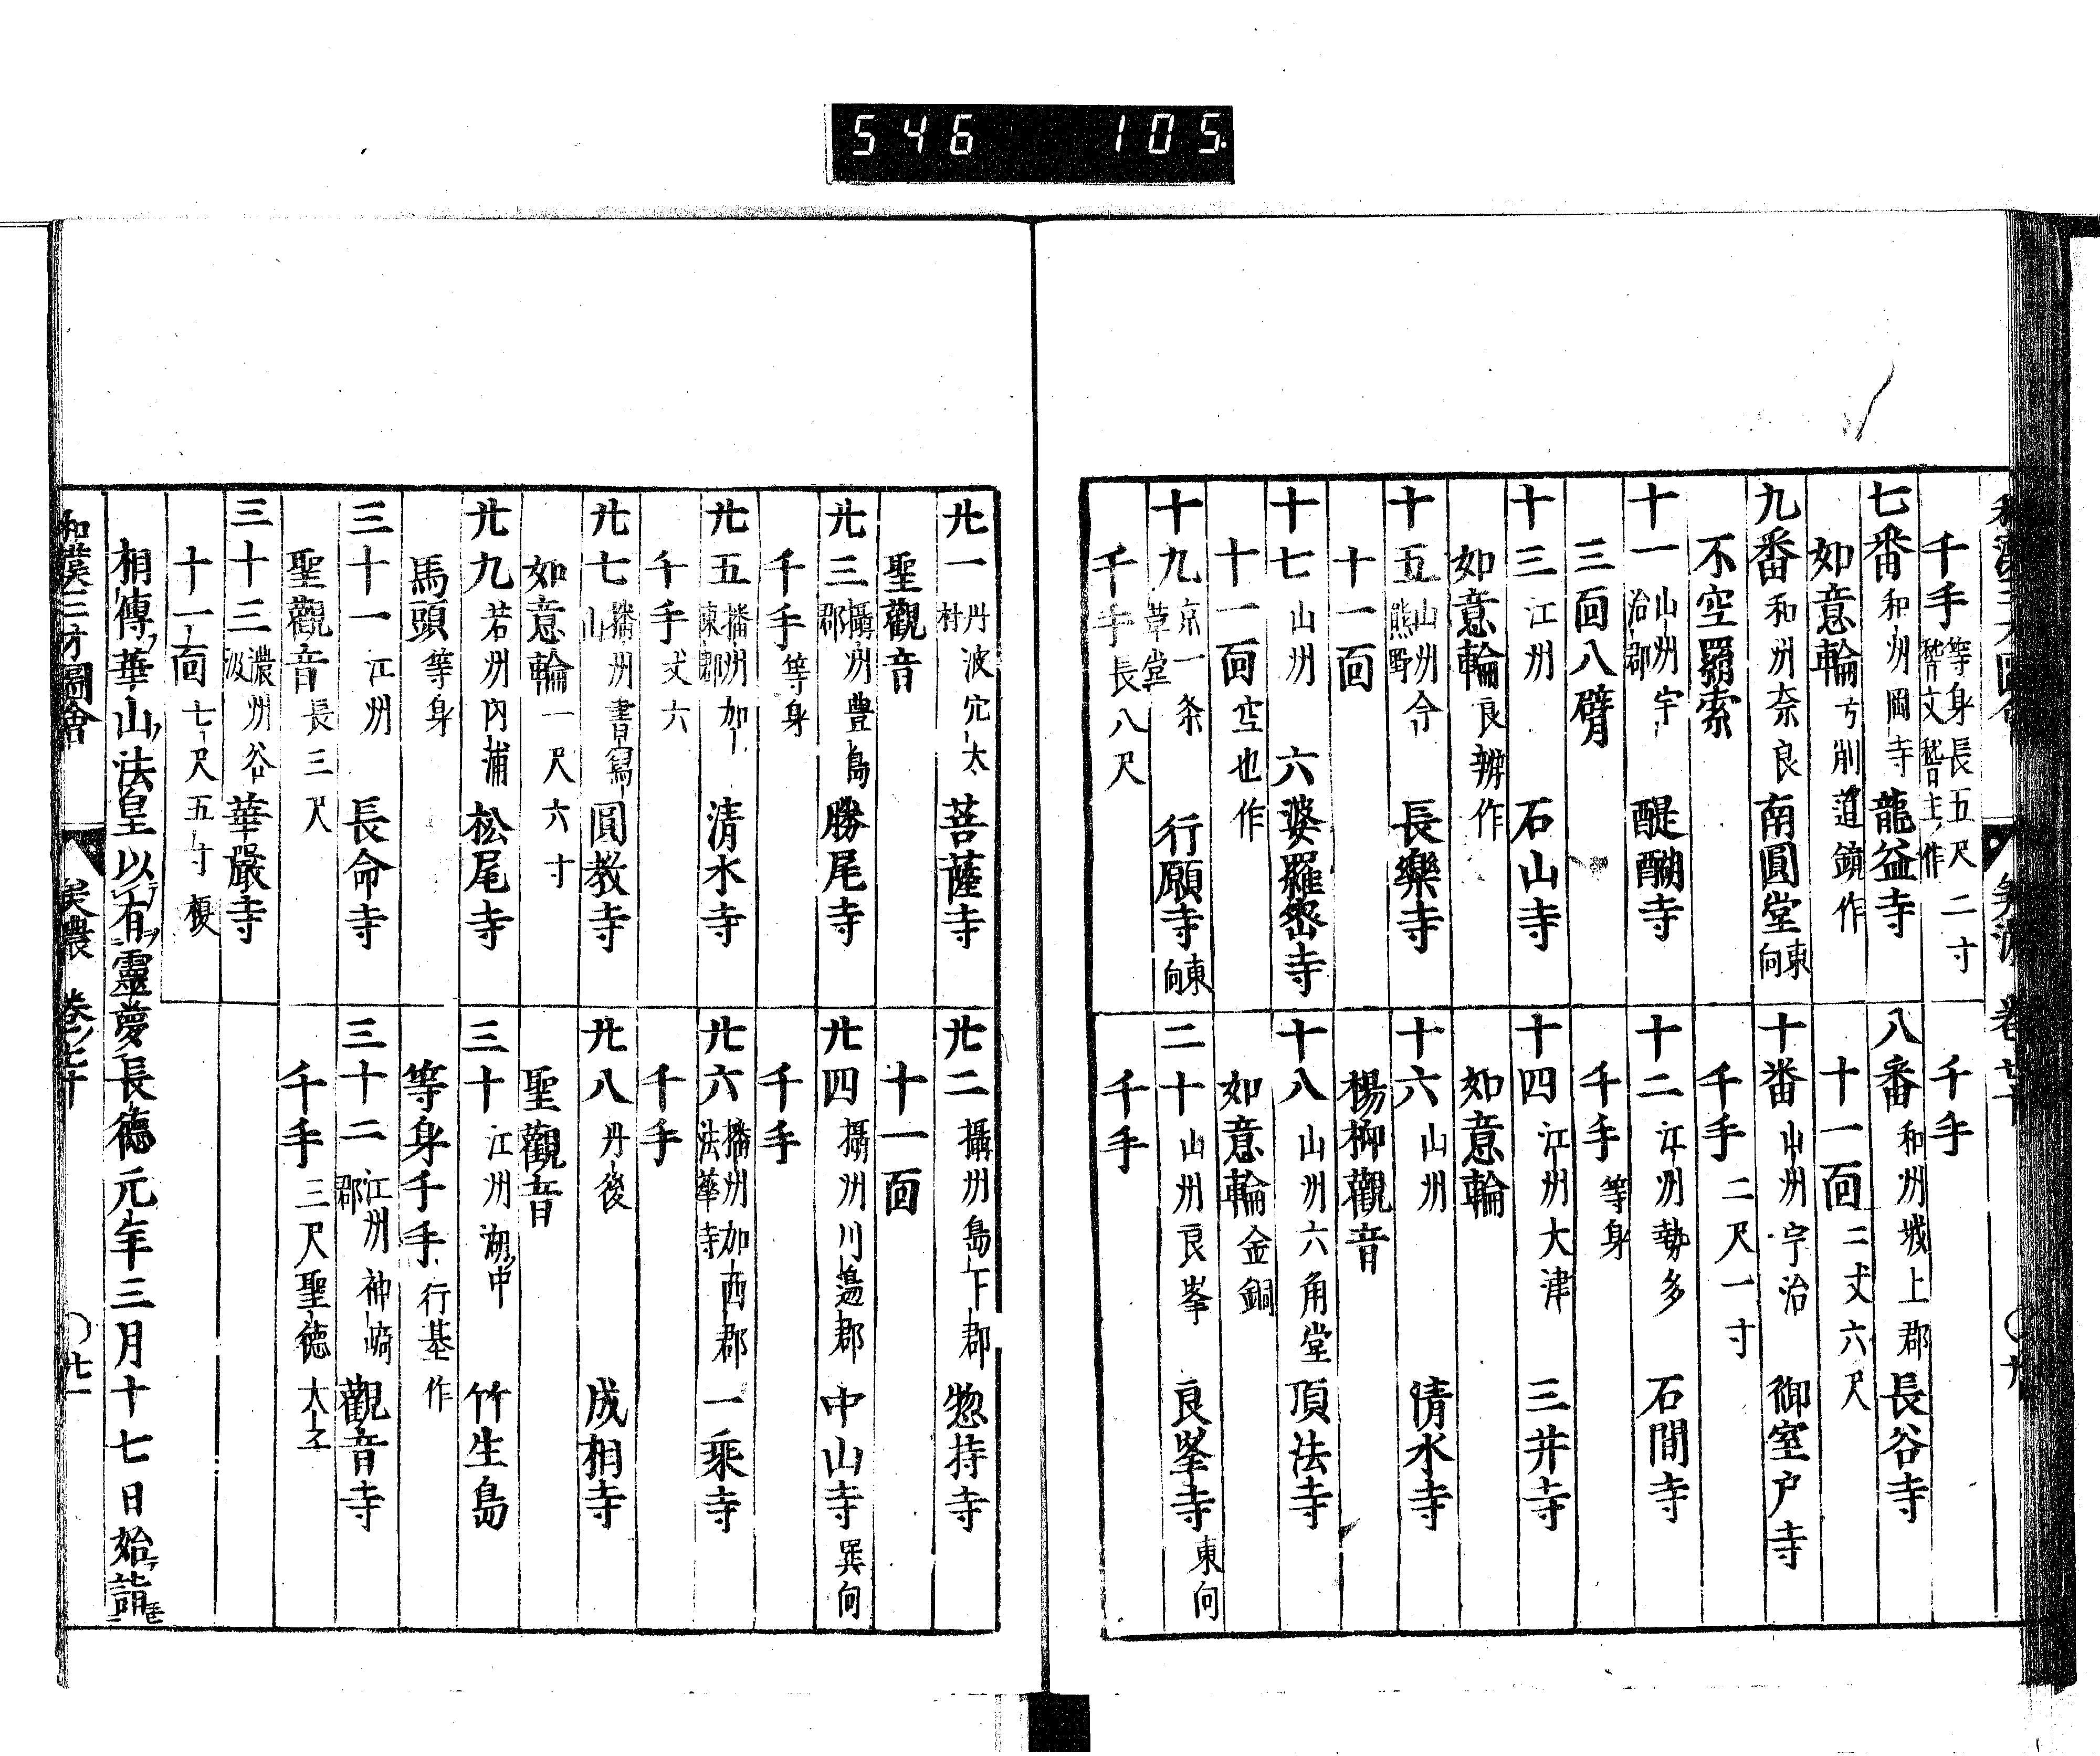 546 105
千手 等身長五尺二寸 稽文稽主作
千手
七番 和州岡寺 龍益寺
八番 和州城上郡 長谷寺
如意輪 弓削道鏡作
十一面 二丈六尺
九番 和州奈良 南圓堂 東向
十番 山州宇治 御室戸寺
不空羂索
千手 二尺一寸
十一 山州宇治郡 醍醐寺
十二 江州勢多 石間寺
三面八臂
千手 等身
十三 江州 石山寺
十四 江州大津 三井寺
如意輪 良辨作
如意輪
十五 山州今熊野 長樂寺
十六 山州 清水寺
十一面
楊柳觀音
十七 山州 六婆羅密寺
十八 山州六角堂 頂法寺
十一面 空也作
如意輪 金銅
十九 京一条革堂 行願寺 東向
二十 山州良峯 良峯寺 東向
千手 長八尺
千手
廿一 丹波穴太村 菩薩寺
廿二 攝州島下郡 惣持寺
聖觀音
十一面
廿三 攝州豊島郡 勝尾寺
廿四 攝州川邉郡 中山寺 巽向
千手 等身
千手
廿五 播州加東郡 清水寺
廿六 播州加西郡法華寺 一乘寺
千手 丈六
千手
廿七 播州書寫山 圓教寺
廿八 丹後 成相寺
如意輪 一尺六寸
聖觀音
廿九 若州内浦 松尾寺
三十 江州湖中 竹生島
馬頭 等身
等身千手 行基作
三十一 江州 長命寺
三十二 江州神崎郡 觀音寺
聖觀音 長三尺
千手 三尺聖德太子
三十三 濃州谷汲 華嚴寺
十一面 七尺五寸 榎
相傳フ華山ノ法皇以テ有ヲ靈夢長德元年三月十七日始テ詣
和漢三才圖會 美濃 卷之七十 ○廿一